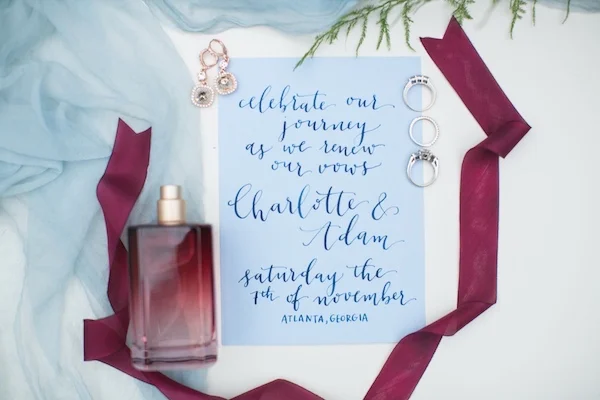 celebrate our
journey
as we renew
our vows
Charlotte &
Adam
saturday the
7th of november
ATLANTA, GEORGIA